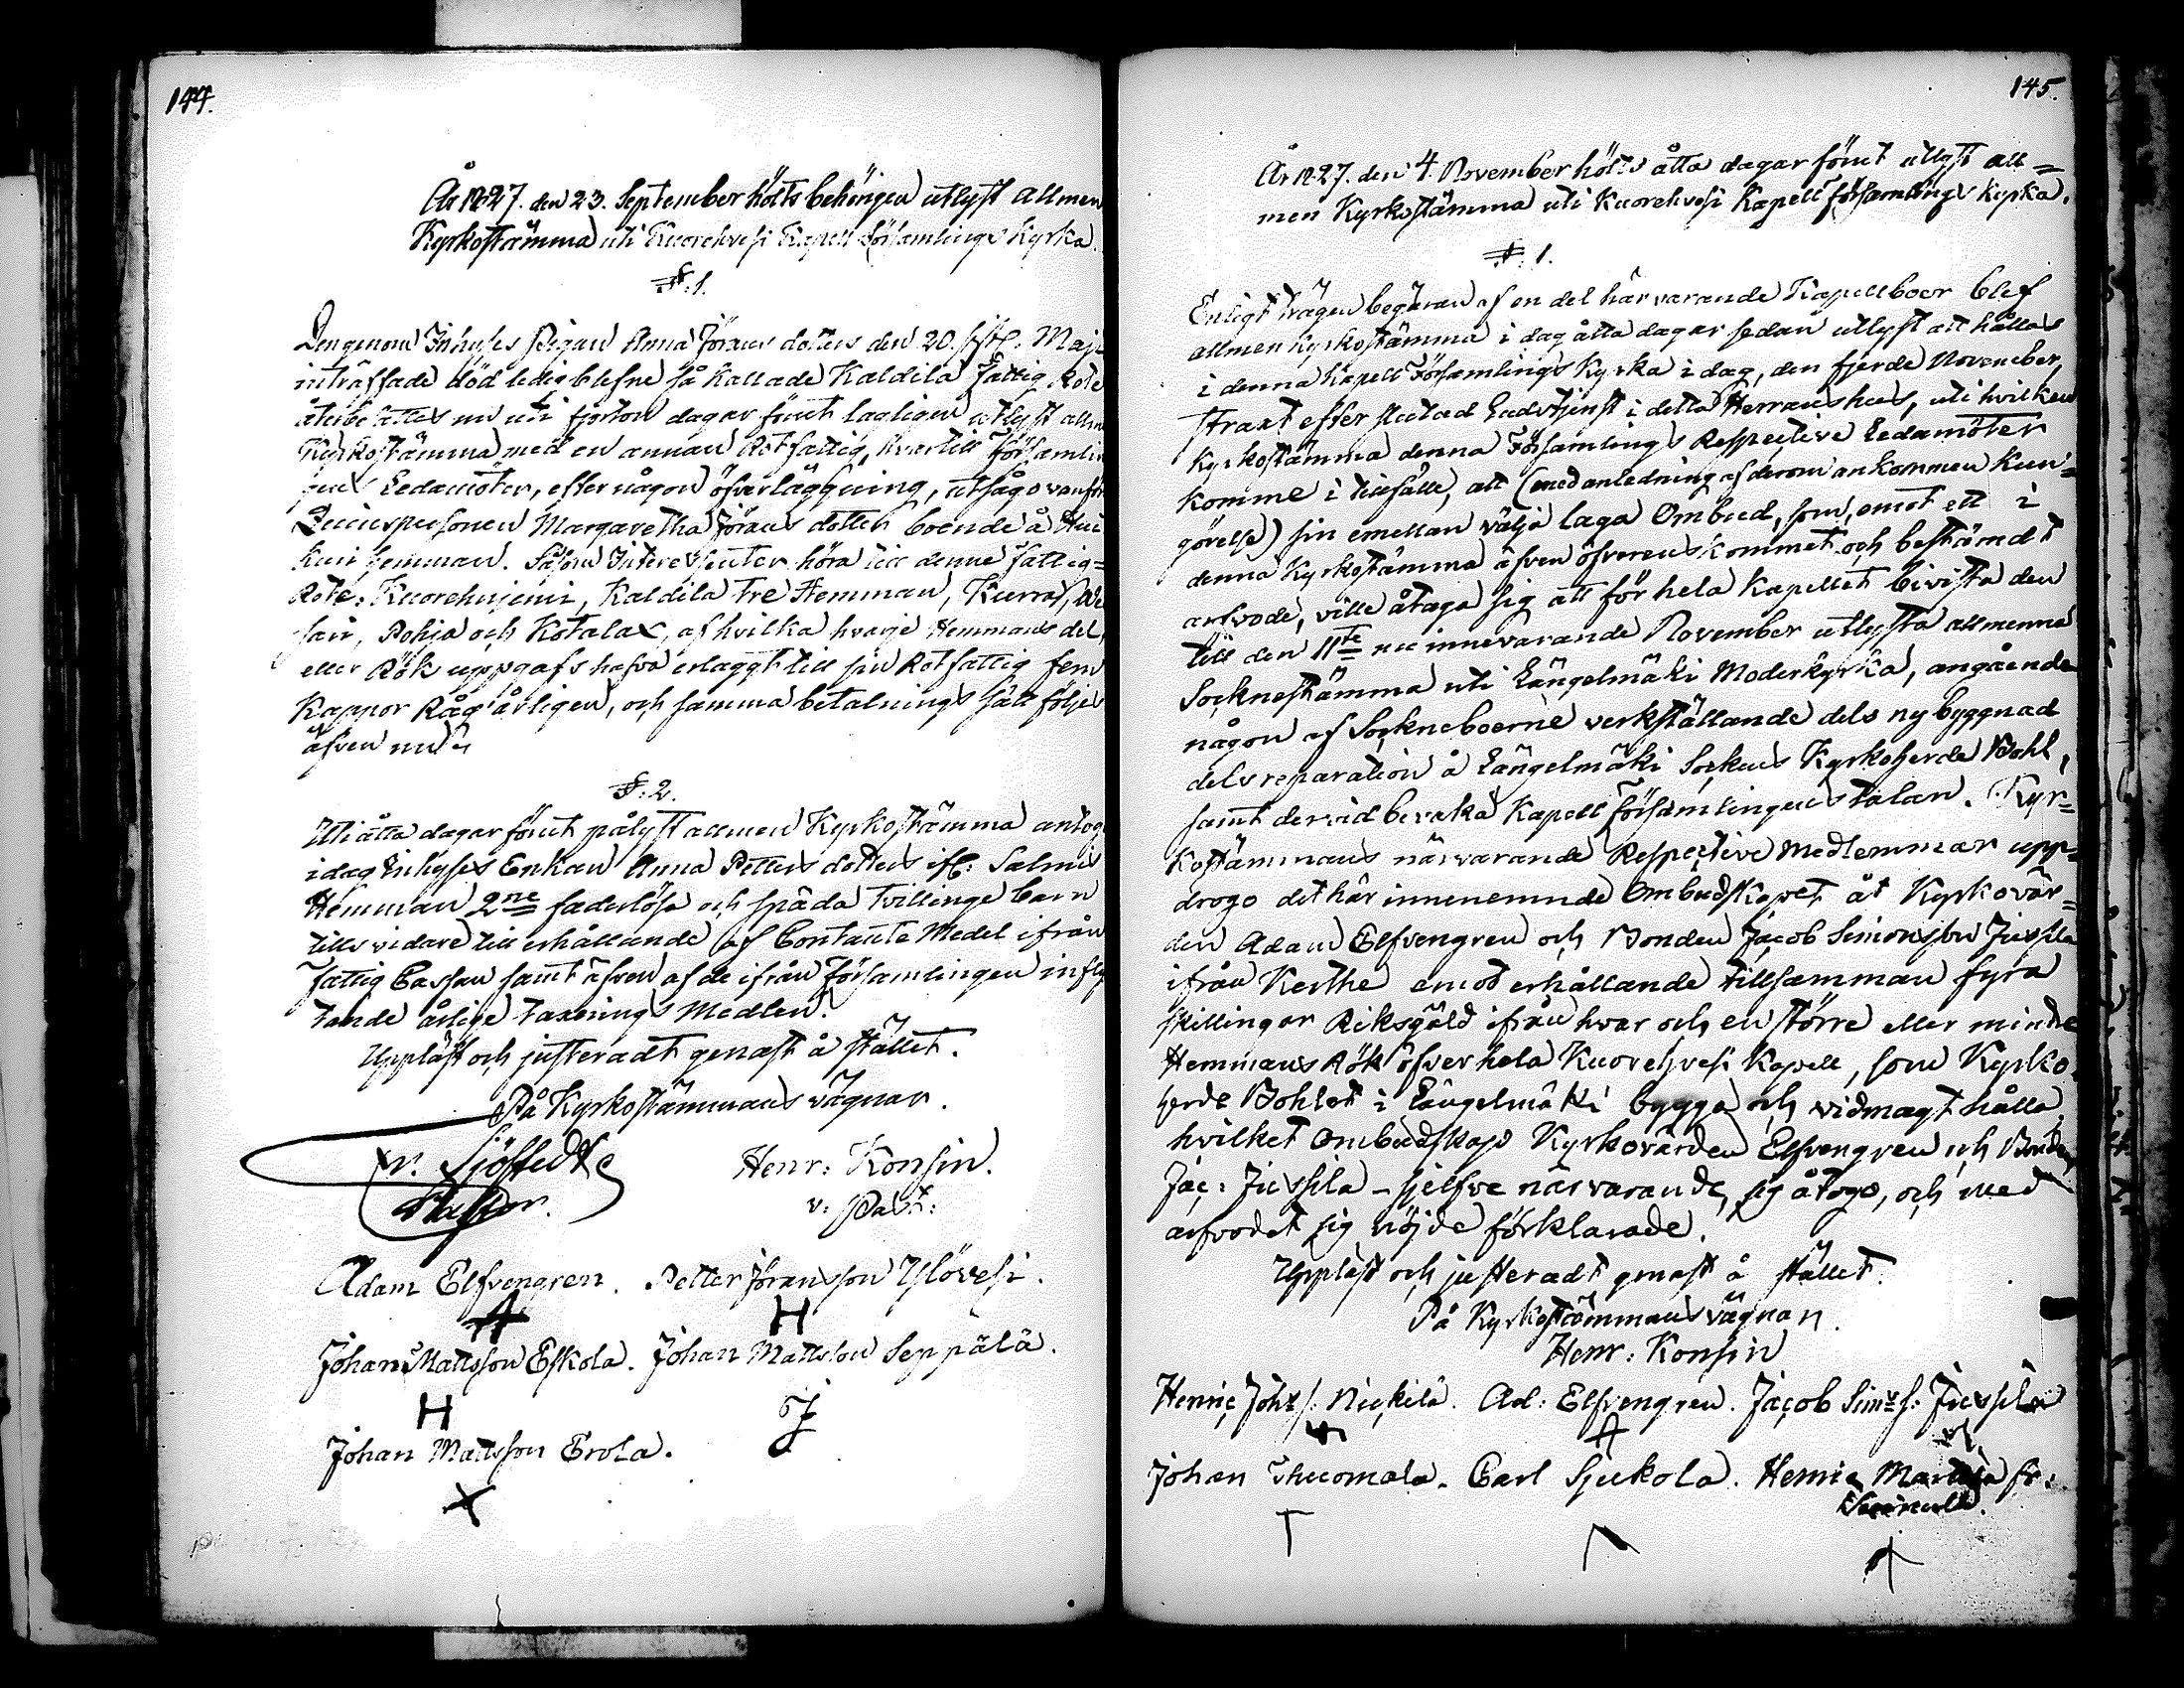 144.
År 1827. den 23. September hölts behörigen utlyst allmen
Kyrkostämma uti Kuorehvesi Kapell Församlings Kyrka.
§. 1.
Den genom Inhyses Pigan Anna Jörans dotters den 20. sistl. Maji
inträffade död ledigblefne så kallade Kaldila Fattig Rote
återbesattes nu uti fjorton dagar förut lagligen utlyst allm
Kyrkostämma med en annan Rotfattig, hvartill Församlin
gens Ledamöter, efter någon öfverläggning, utsågo vanför
Qvinspersonen Margaretha Jörans dotter boende å
hemman. Såsom Interessenter höra till denne fattig=
Rote: Kuorehujemi, Kaldila tre Hemman, Kurra,
Pohja och Kotala, af hvilka hvarje Hemmans del,
eller Rök uppgafs hafva erlaggt till sin Rotfattig fem
Kappor Råg årligen, och samma betalnings sätt följes
äfven nu.
§. 2.
Uti åtta dagar förut pålyst allmen Kyrkostämma antog
i dag Inhyses Enkan Anna Petters dotters ifr: Salmis
Hemman 2ne faderlösa och späda tvillinge barn
tills vidare till erhållande af Contanta Medel ifrån
Fattig Cassan samt äfven af de ifrån församlingen infly
tande årlige taxerings Medlen.
Uppläst och justeradt genast å stället.
På Kyrkostämmans vägnar.
Sjöstedt
Pastor.
Henr: Konsin.
v: Past:
Adam Elfvengren. Petter Jöransson Ylövesi.
A H
Johan Mattsson Eskola. Johan Mattsson Seppälä.
H
Johan Mattsson Erola.
X
145.
År 1827. den 4. November hölts åtta dagar förut utlyst all=
men Kyrkostämma uti Kuorehvesi Kapell församlings kyrka.
§. 1.
Enligt trägen begäran af en del härvarande Kapellboer blef
allmen Kyrkostämma i dag åtta dagar sedan utlyst att hållas
i denna Kapell Församlings Kyrka i dag, den fjerde November,
straxt efter slutad Gudstjenst i detta Herrans hus, uti hvilken
Kyrkostämma denna Församlings Respective Ledamöter
komme i tillfälle, att (med anledning af derom ankommen kun=
görelse) sin emellan välja laga Ombud, som, emot ett i
denna Kyrkostämma äfven öfverenskommet och bestämdt
arfvode, ville åtaga sig att för hela Kapellet bivista den
till den 11te nu innevarande November utlysta allmenna
Socknestämma uti Längelmäki Moderkyrka, angående
någon af Sockneboerne verkställande dels ny byggnad
dels reparation å Längelmäki Sockens Kyrkoherde Bohl,
samt dervid bevaka Kapell Församlingens talan. Kyr=
kostämmans närvarande Respective Medlemmar upp=
drogo det här innenemnde Ombudskapet åt Kyrkovär=
den Adam Elfvengren och Bonden Jacob Simonsson Jussila
ifrån Kerthe emot erhållande tillsamman fyra
skillingar Riksgäld ifrån hvar och en större eller mindre
Hemmans Rök öfver hela Kuorehvesi Kapell, som Kyrko
herde Bohlet i Längelmäki bygga och vidmagt hålla,
hvilket Ombudskap Kyrkovärden Elfvengren och Bonden
Jac: Jussila – sjelfve närvarande, sig åtogo, och med
arfvodet sig nöjde förklarade.
Uppläst och justeradt genast å stället.
På Kyrkostämmans vägnar.
Henr: Konsin
Henric Johs s: Nickilä. Ad: Elfvengren. Jacob Sims s: Jussila
A
Johan Thuomala. Carl Sjukola. Henric Marttila fr: